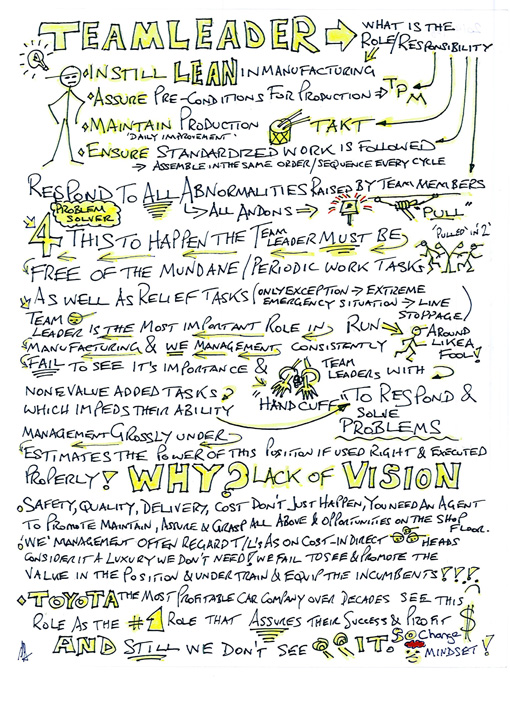 TEAMLEADER
WHAT IS THE
ROLE/RESPONSIBILITY
INSTILL LEAN IN MANUFACTURING
ASSURE PRE-CONDITIONS FOR PRODUCTION TPM
MAINTAIN PRODUCTION TAKT
'DAILY IMPROVEMENT'
ENSURE STANDARDIZED WORK IS FOLLOWED
ASSEMBLE IN THE SAME ORDER/SEQUENCE EVERY CYCLE
RESPOND TO ALL ABNORMALITIES RAISED BY TEAM MEMBERS
PROBLEM SOLVER
ALL ANDONS "PULL"
4 THIS TO HAPPEN THE TEAM LEADER MUST BE
"PULLED IN 2"
FREE OF THE MUNDANE/PERIODIC WORK TASKS
AS WELL AS RELIEF TASKS (ONLY EXCEPTION → EXTREME
EMERGENCY SITUATION → LINE STOPPAGE)
TEAM LEADER IS THE MOST IMPORTANT ROLE IN
RUN AROUND LIKE A FOOL!
MANUFACTURING & WE MANAGEMENT CONSISTENTLY
FAIL TO SEE IT'S IMPORTANCE &
HANDCUFF
TEAM LEADERS WITH
NONE VALUE ADDED TASKS
WHICH IMPEDS THEIR ABILITY
"TO RESPOND & SOLVE
PROBLEMS
MANAGEMENT GROSSLY UNDER
ESTIMATES THE POWER OF THIS POSITION IF USED RIGHT & EXECUTED
PROPERLY! WHY? LACK OF VISION
SAFETY, QUALITY, DELIVERY, COST DON'T JUST HAPPEN, YOU NEED AN AGENT
TO PROMOTE MAINTAIN, ASSURE & GRASP ALL ABOVE & OPPORTUNITIES ON THE SHOP FLOOR.
'WE' MANAGEMENT OFTEN REGARD T/L'S AS ON COST-INDIRECT HEADS
CONSIDER IT A LUXURY WE DON'T NEED! WE FAIL TO SEE & PROMOTE THE
VALUE IN THE POSITION & UNDER TRAIN & EQUIP THE INCUMBENTS!!!
TOYOTA THE MOST PROFITABLE CAR COMPANY OVER DECADES SEE THIS
ROLE AS THE #1 ROLE THAT ASSURES THEIR SUCCESS & PROFIT $
AND STILL WE DON'T SEE IT. $
Change
MINDSET!